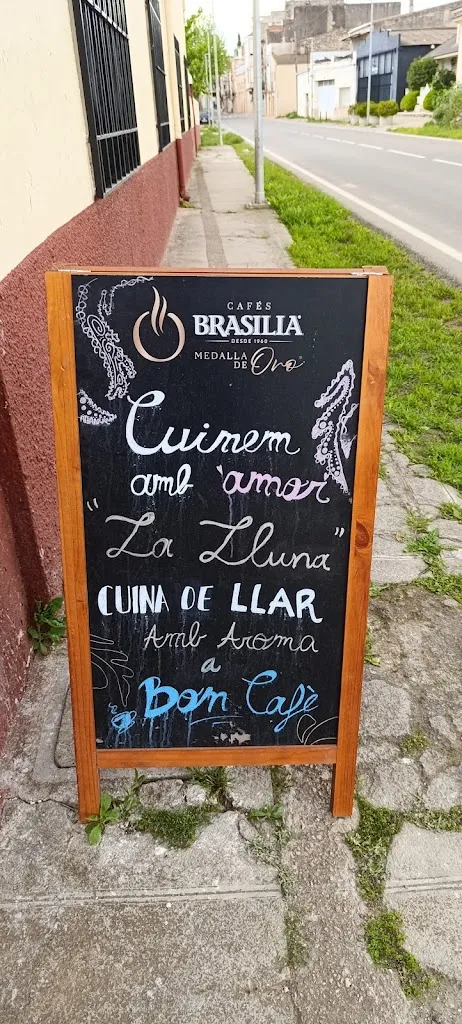 CAFÉS
BRASILIA
DESDE 1960
MEDALLA
DE Oro
Cuinem
amb amor
"La Lluna"
CUINA DE LLAR
Amb Aroma
a
Bon Cafè